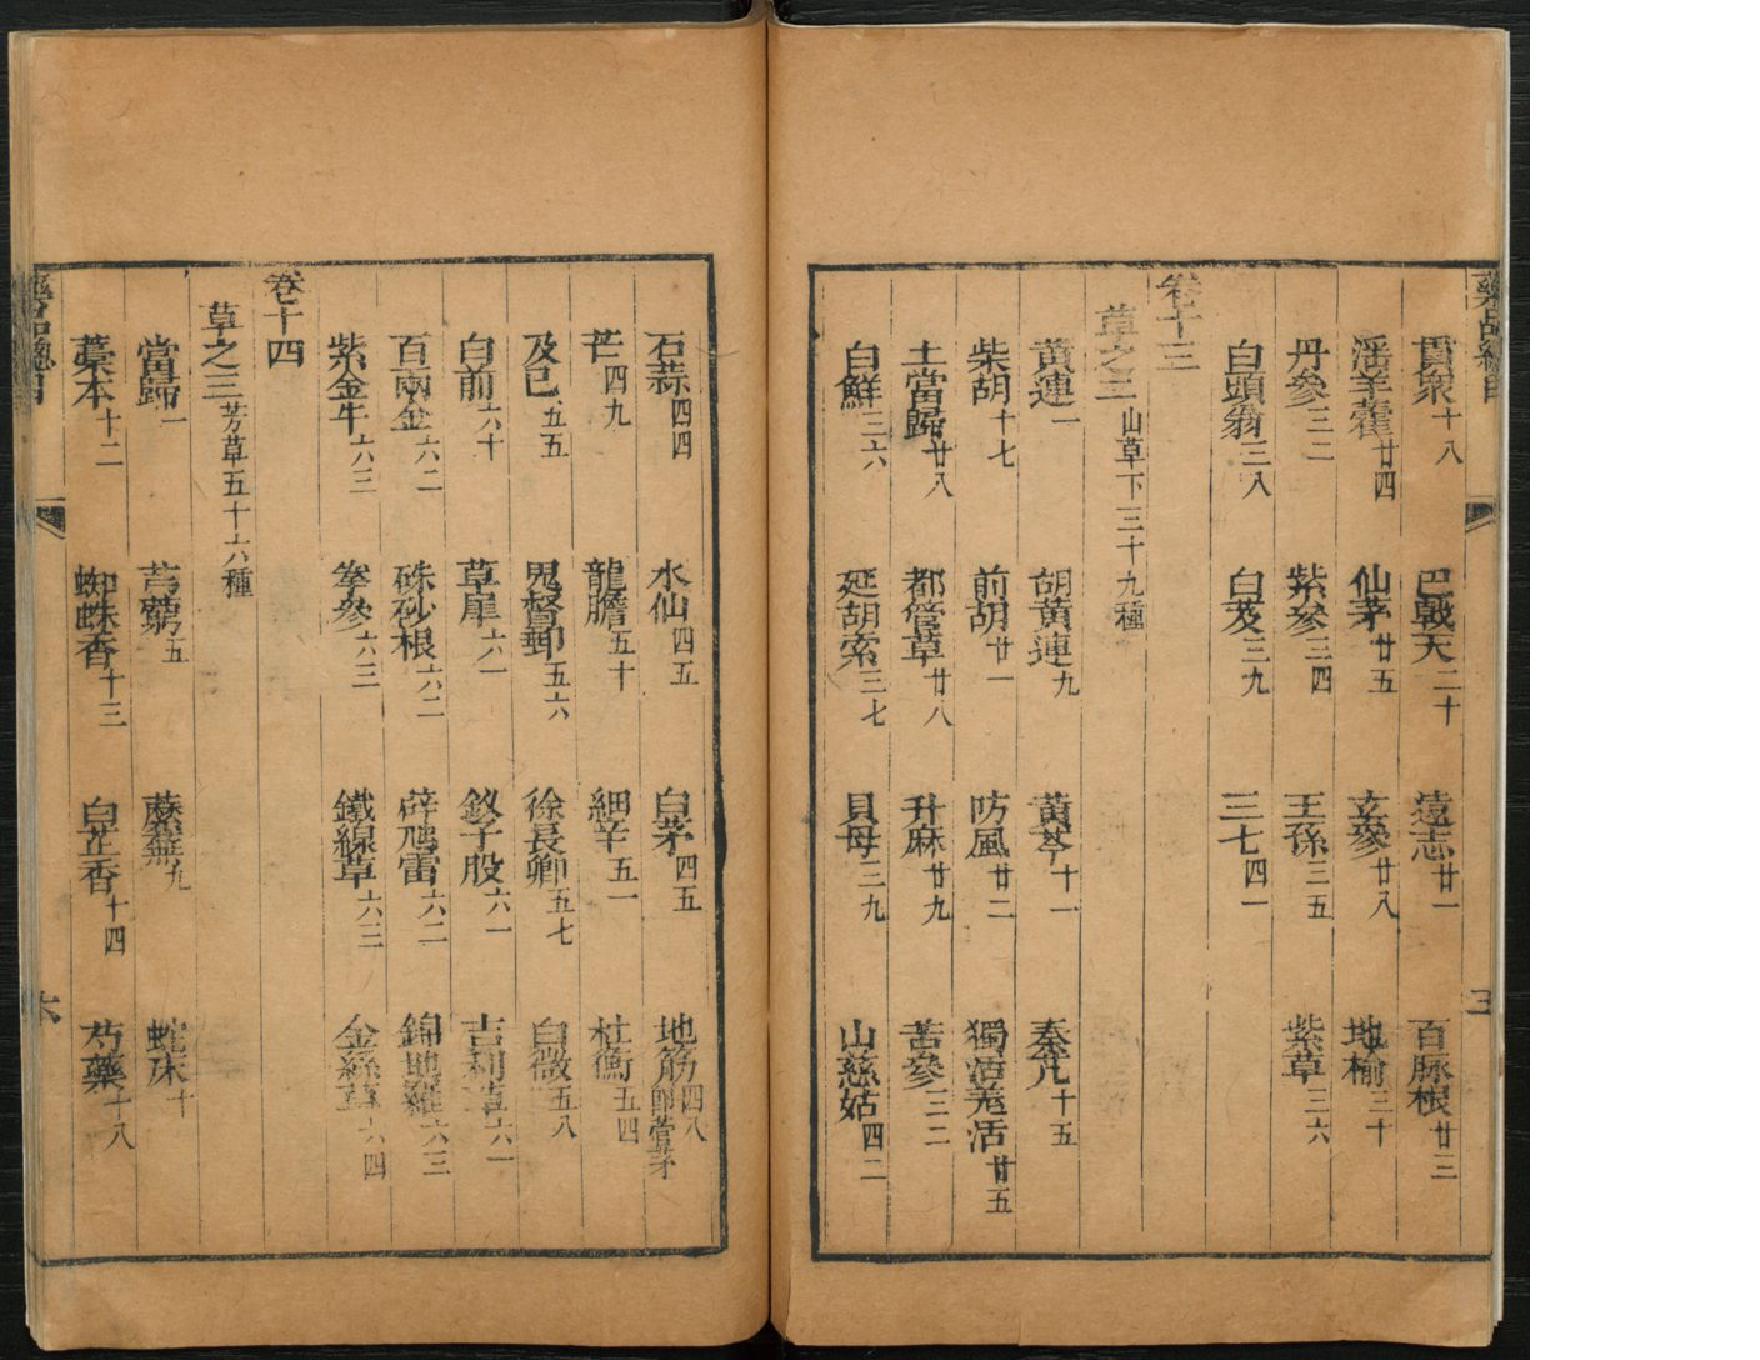 藥品總目
貫衆十八 巴戟天二十 遠志廿一 百脈根廿三
淫羊藿廿四 仙茅廿五 玄參廿八 地榆三十
丹參三二 紫參三四 王孫三五 紫草三六
白頭翁三八 白芨三九 三七四一
卷十三
草之二山草下三十九種
黃連一 胡黃連九 黃芩十一 秦艽十五
柴胡十七 前胡廿一 防風廿二 獨活羌活廿五
土當歸廿八 都管草廿八 升麻廿九 苦參三二
白鮮三六 延胡索三七 貝母三九 山慈姑四二
石蒜四四 水仙四五 白茅四五 地筋四八即菅茅
芒四九 龍膽五十 細辛五一 杜衡五四
及已五五 鬼督郵五六 徐長卿五七 白薇五八
白前六十 草犀六一 釵子股六一 吉利草六一
百兩金六二 硃砂根六二 辟虺雷六二 錦地羅六三
紫金牛六三 拳參六三 鐵線草六三 金絲草六四
卷十四
草之三芳草五十六種
當歸一 芎藭五 蘼蕪九 蛇床十
藁本十二 蜘蛛香十三 白芷香十四 芍藥十八
藥品總目
六